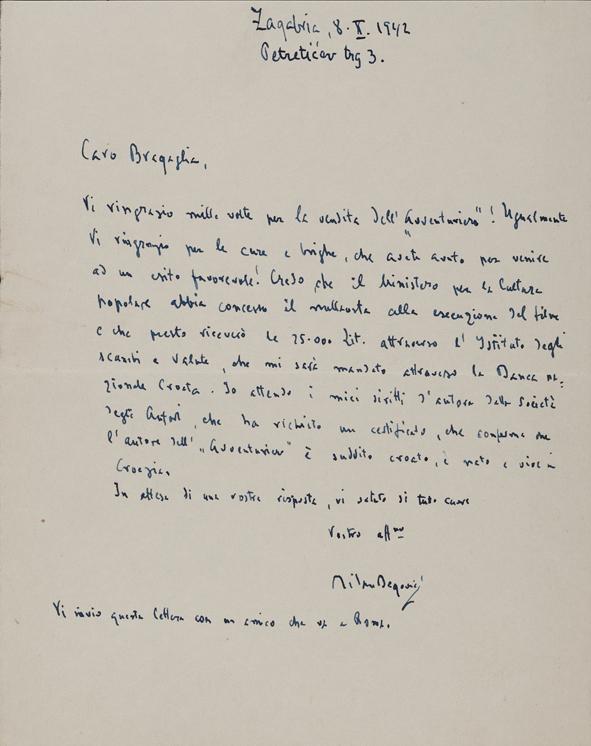 Zagabria, 8. X. 1942
Petretićev trg 3.
Caro Bragaglia,
Vi ringrazio mille volte per la vendita dell' „Avventuriero"! Ugualmente
Vi ringrazio per le cure e brighe, che avete avuto per venire
ad un esito favorevole! Credo che il Ministero per la Cultura
popolare abbia concesso il nullaosta alla esecuzione del filme
e che presto riceverò le 25.000 Lit. attraverso l' Istituto degli
scambi e valute, che mi sarà mandato attraverso la Banca na-
zionale Croata. Io attendo i miei diritti d'autore dalla Società
degli Autori, che ha richiesto un certificato, che conferma che
l'autore dell' „Avventuriero" è suddito croato, è nato e vive in
Croazia.
In attesa di una vostra risposta, vi saluto di tutto cuore
Vostro aff.mo
Milan Begović
Vi invio questa lettera con un amico che va a Roma.